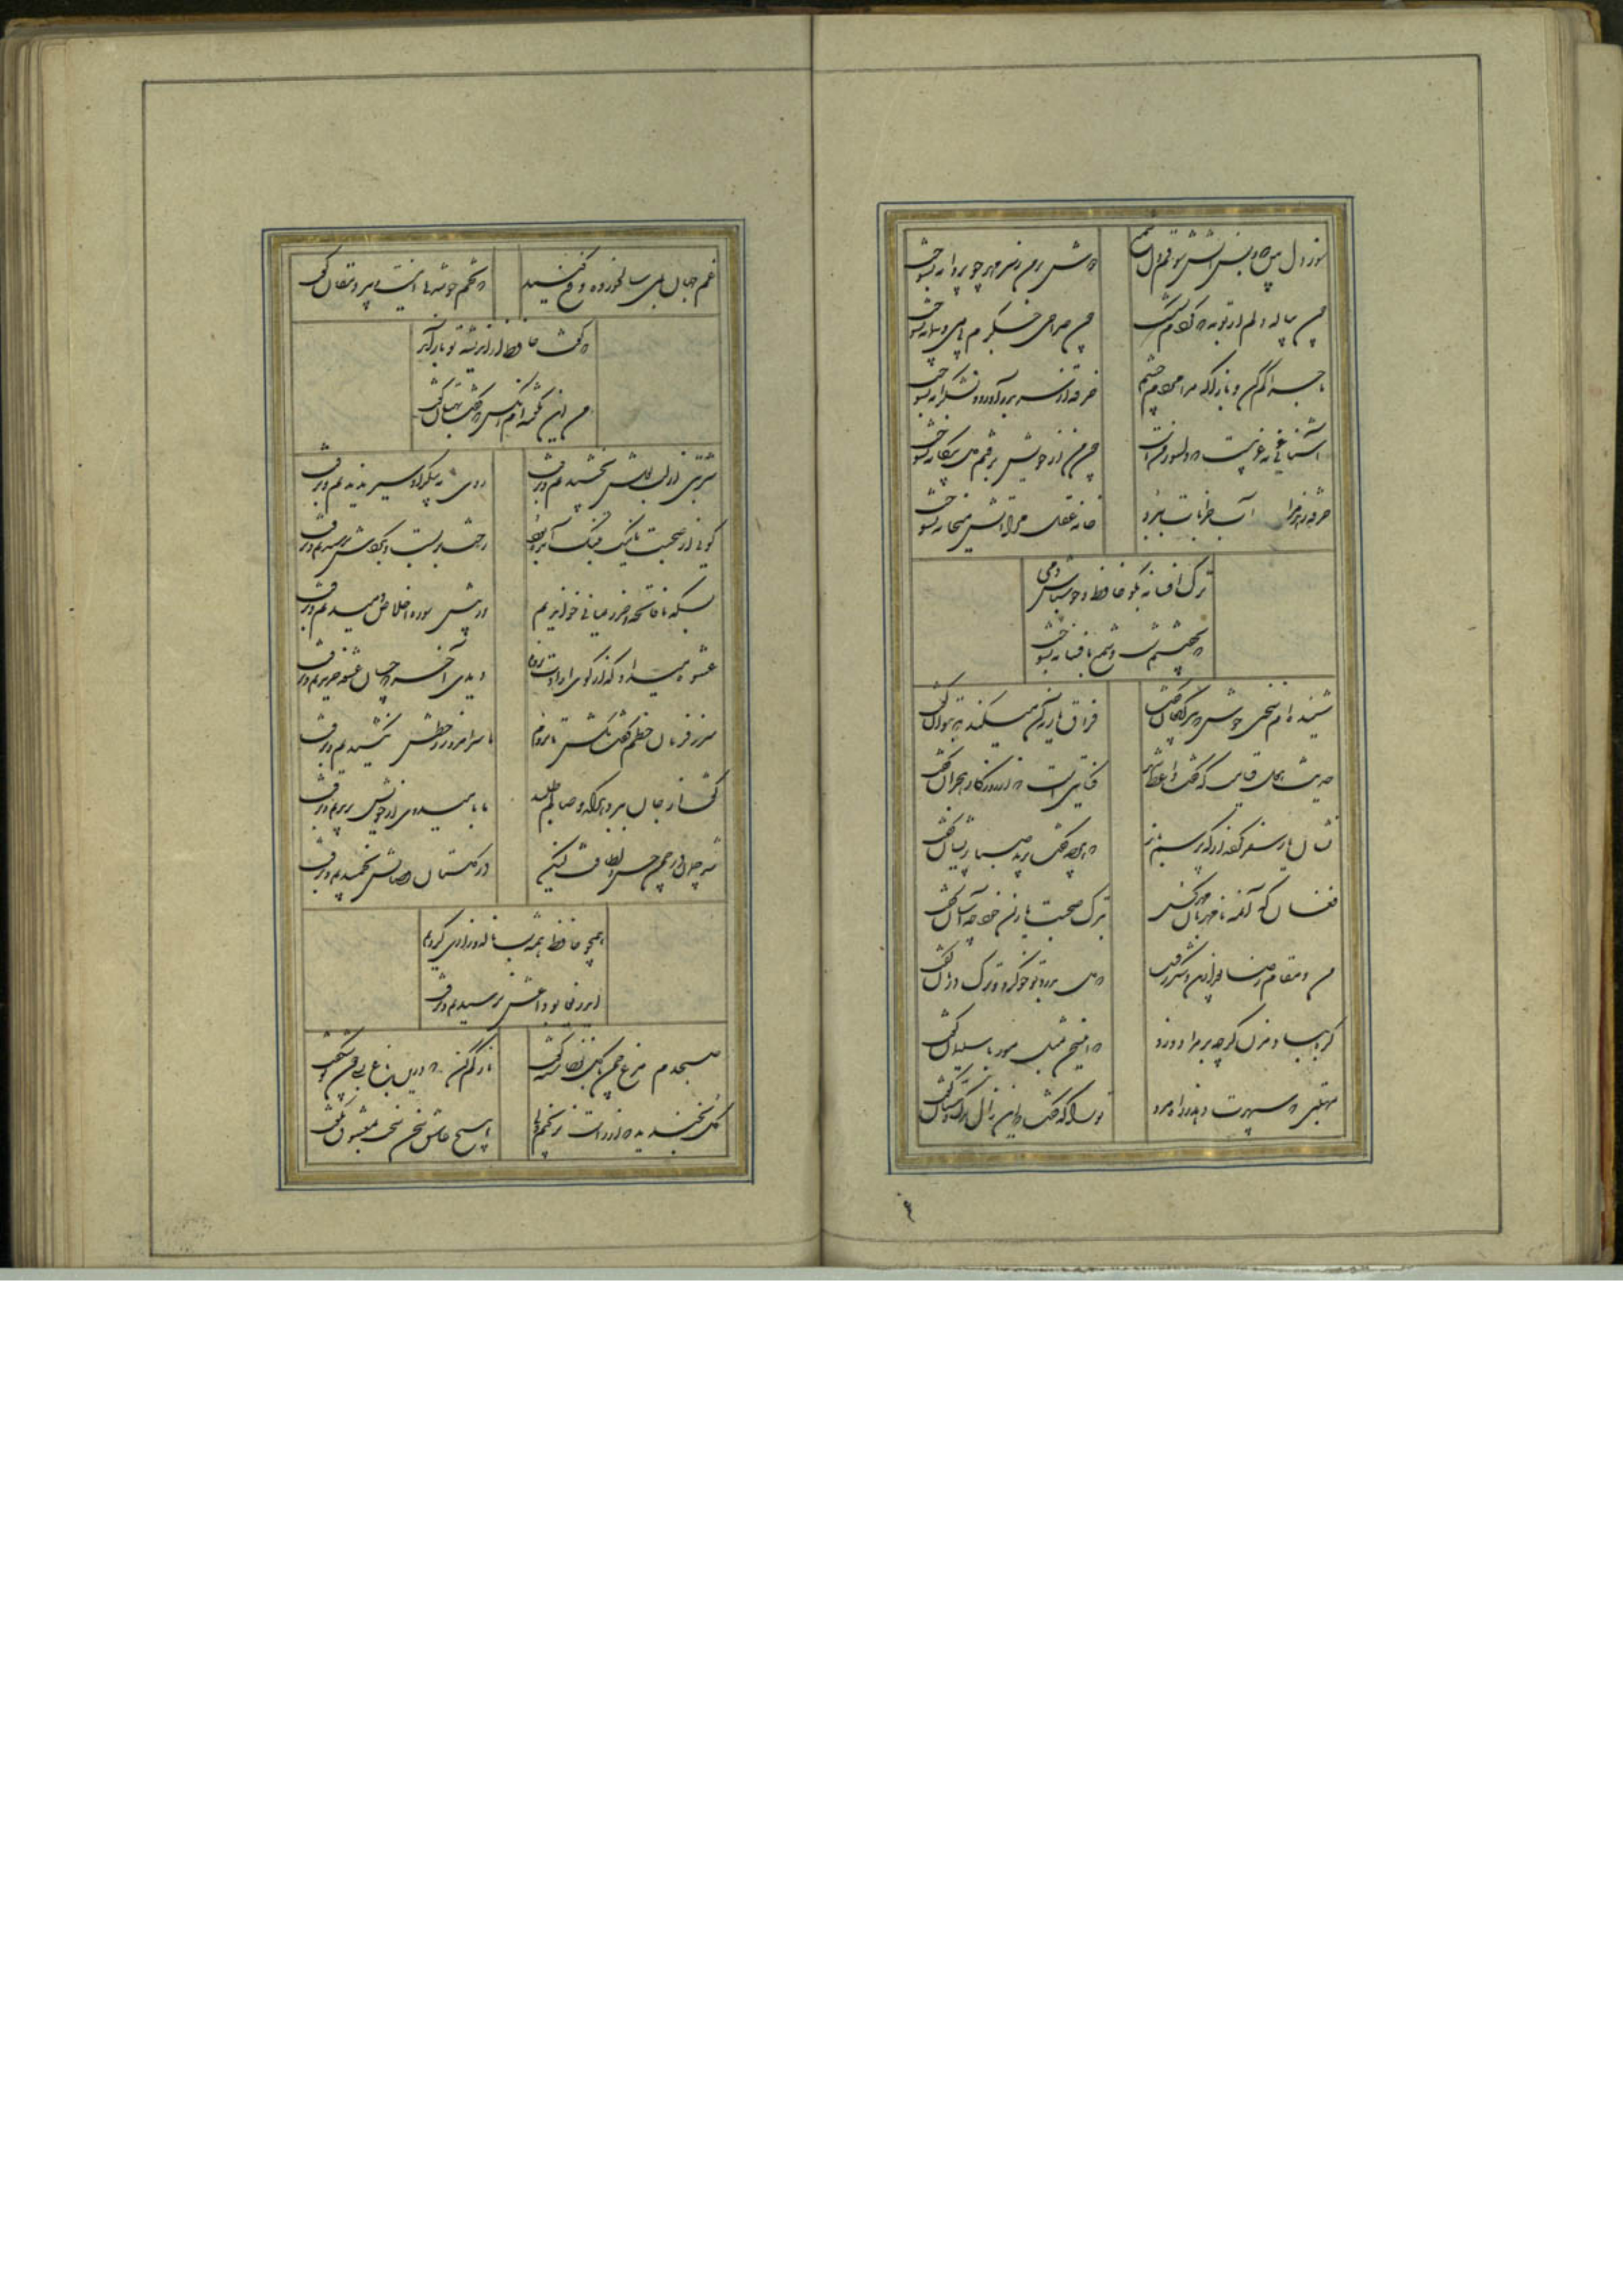 سوز دل بین که ز بس آتش و اشکم دل شمع
دوش بر من ز سر مهر چو پروانه بسوخت
چون پیاله دلم از توبه که کردم بشکست
چون صراحی جگرم بی می و پیمانه بسوخت
ماجرا کم کن و بازآ که مرا مردم چشم
خرقه از سر بدر آورد و بشکرانه بسوخت
آشنایی نه غریبست که دلسوز منست
چون من از خویش برفتم دل بیگانه بسوخت
خرقه زهد مرا آب خرابات ببرد
خانه عقل مرا آتش میخانه بسوخت
ترک افسانه بگو حافظ و خوشباش دمی
که نخفتیم شب و شمع بافسانه بسوخت
شنیده ام سخنی خوش که پیر کنعان گفت
فراق یار نه آن میکند که بتوان گفت
حدیث هول قیامت که گفت واعظ شهر
کنایتیست که از روزگار هجران گفت
نشان یار سفر کرده از که پرسم باز
که هرچه گفت برید صبا پریشان گفت
فغان که آن مه نامهربان مهر گسل
بترک صحبت یاران خود چه آسان گفت
من و مقام رضا بعد ازین و شکر رقیب
که دل بدرد تو خو کرد و ترک درمان گفت
گره بباد مزن گرچه بر مراد وزد
که این سخن بمثل مور با سلیمان گفت
بمهلتی که سپهرت دهد ز راه مرو
ترا که گفت که این زال ترک دستان گفت
غم جهان بمی سالخورده دفع کنید
که تخم خوشدلی اینست پیر دهقان گفت
که گفت حافظ از اندیشه تو باز آمد
من این نگفته ام آنکس که گفت بهتان گفت
شربتی از لب لعلش نچشیدیم و برفت
روی مه پیکر او سیر ندیدیم و برفت
گویی از صحبت ما نیک بتنگ آمده بود
رخت بربست و بگردش نرسیدیم و برفت
بسکه ما فاتحه و حرز یمانی خواندیم
وز پیش سوره اخلاص دمیدیم و برفت
عشوه میداد که از کوی ارادت نروم
دیدی آخر که چنان عشوه خریدیم و برفت
سر ز فرمان خطم گفت مکش تا نروم
ما سر خطش نکشیدیم و برفت
گفت از جان ببرد هرکه وصالم طلبد
ما بامید وی از خویش بریدیم و برفت
شد چمان در چمن حسن و لطافت لیکن
در گلستان وصالش نچمیدیم و برفت
همچو حافظ همه شب ناله و زاری کردیم
کای دریغا بوداعش نرسیدیم و برفت
صبحدم مرغ چمن با گل نوخاسته گفت
ناز کم کن که درین باغ بسی چون تو شکفت
گل بخندید که از راست نرنجیم ولی
هیچ عاشق سخن سخت بمعشوق نگفت